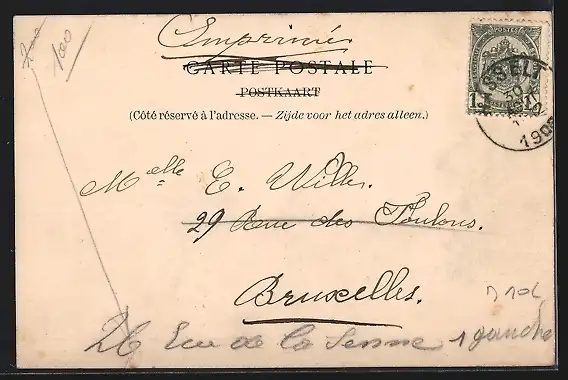 Imprimé
CARTE POSTALE
POSTKAART
(Côté réservé à l'adresse. — Zijde voor het adres alleen.)
POSTES
1 1
HASSELT
1905
100
Melle E. Willer.
29 Rue des Foulons.
Bruxelles.
26 Rue de la Senne 1 gauche